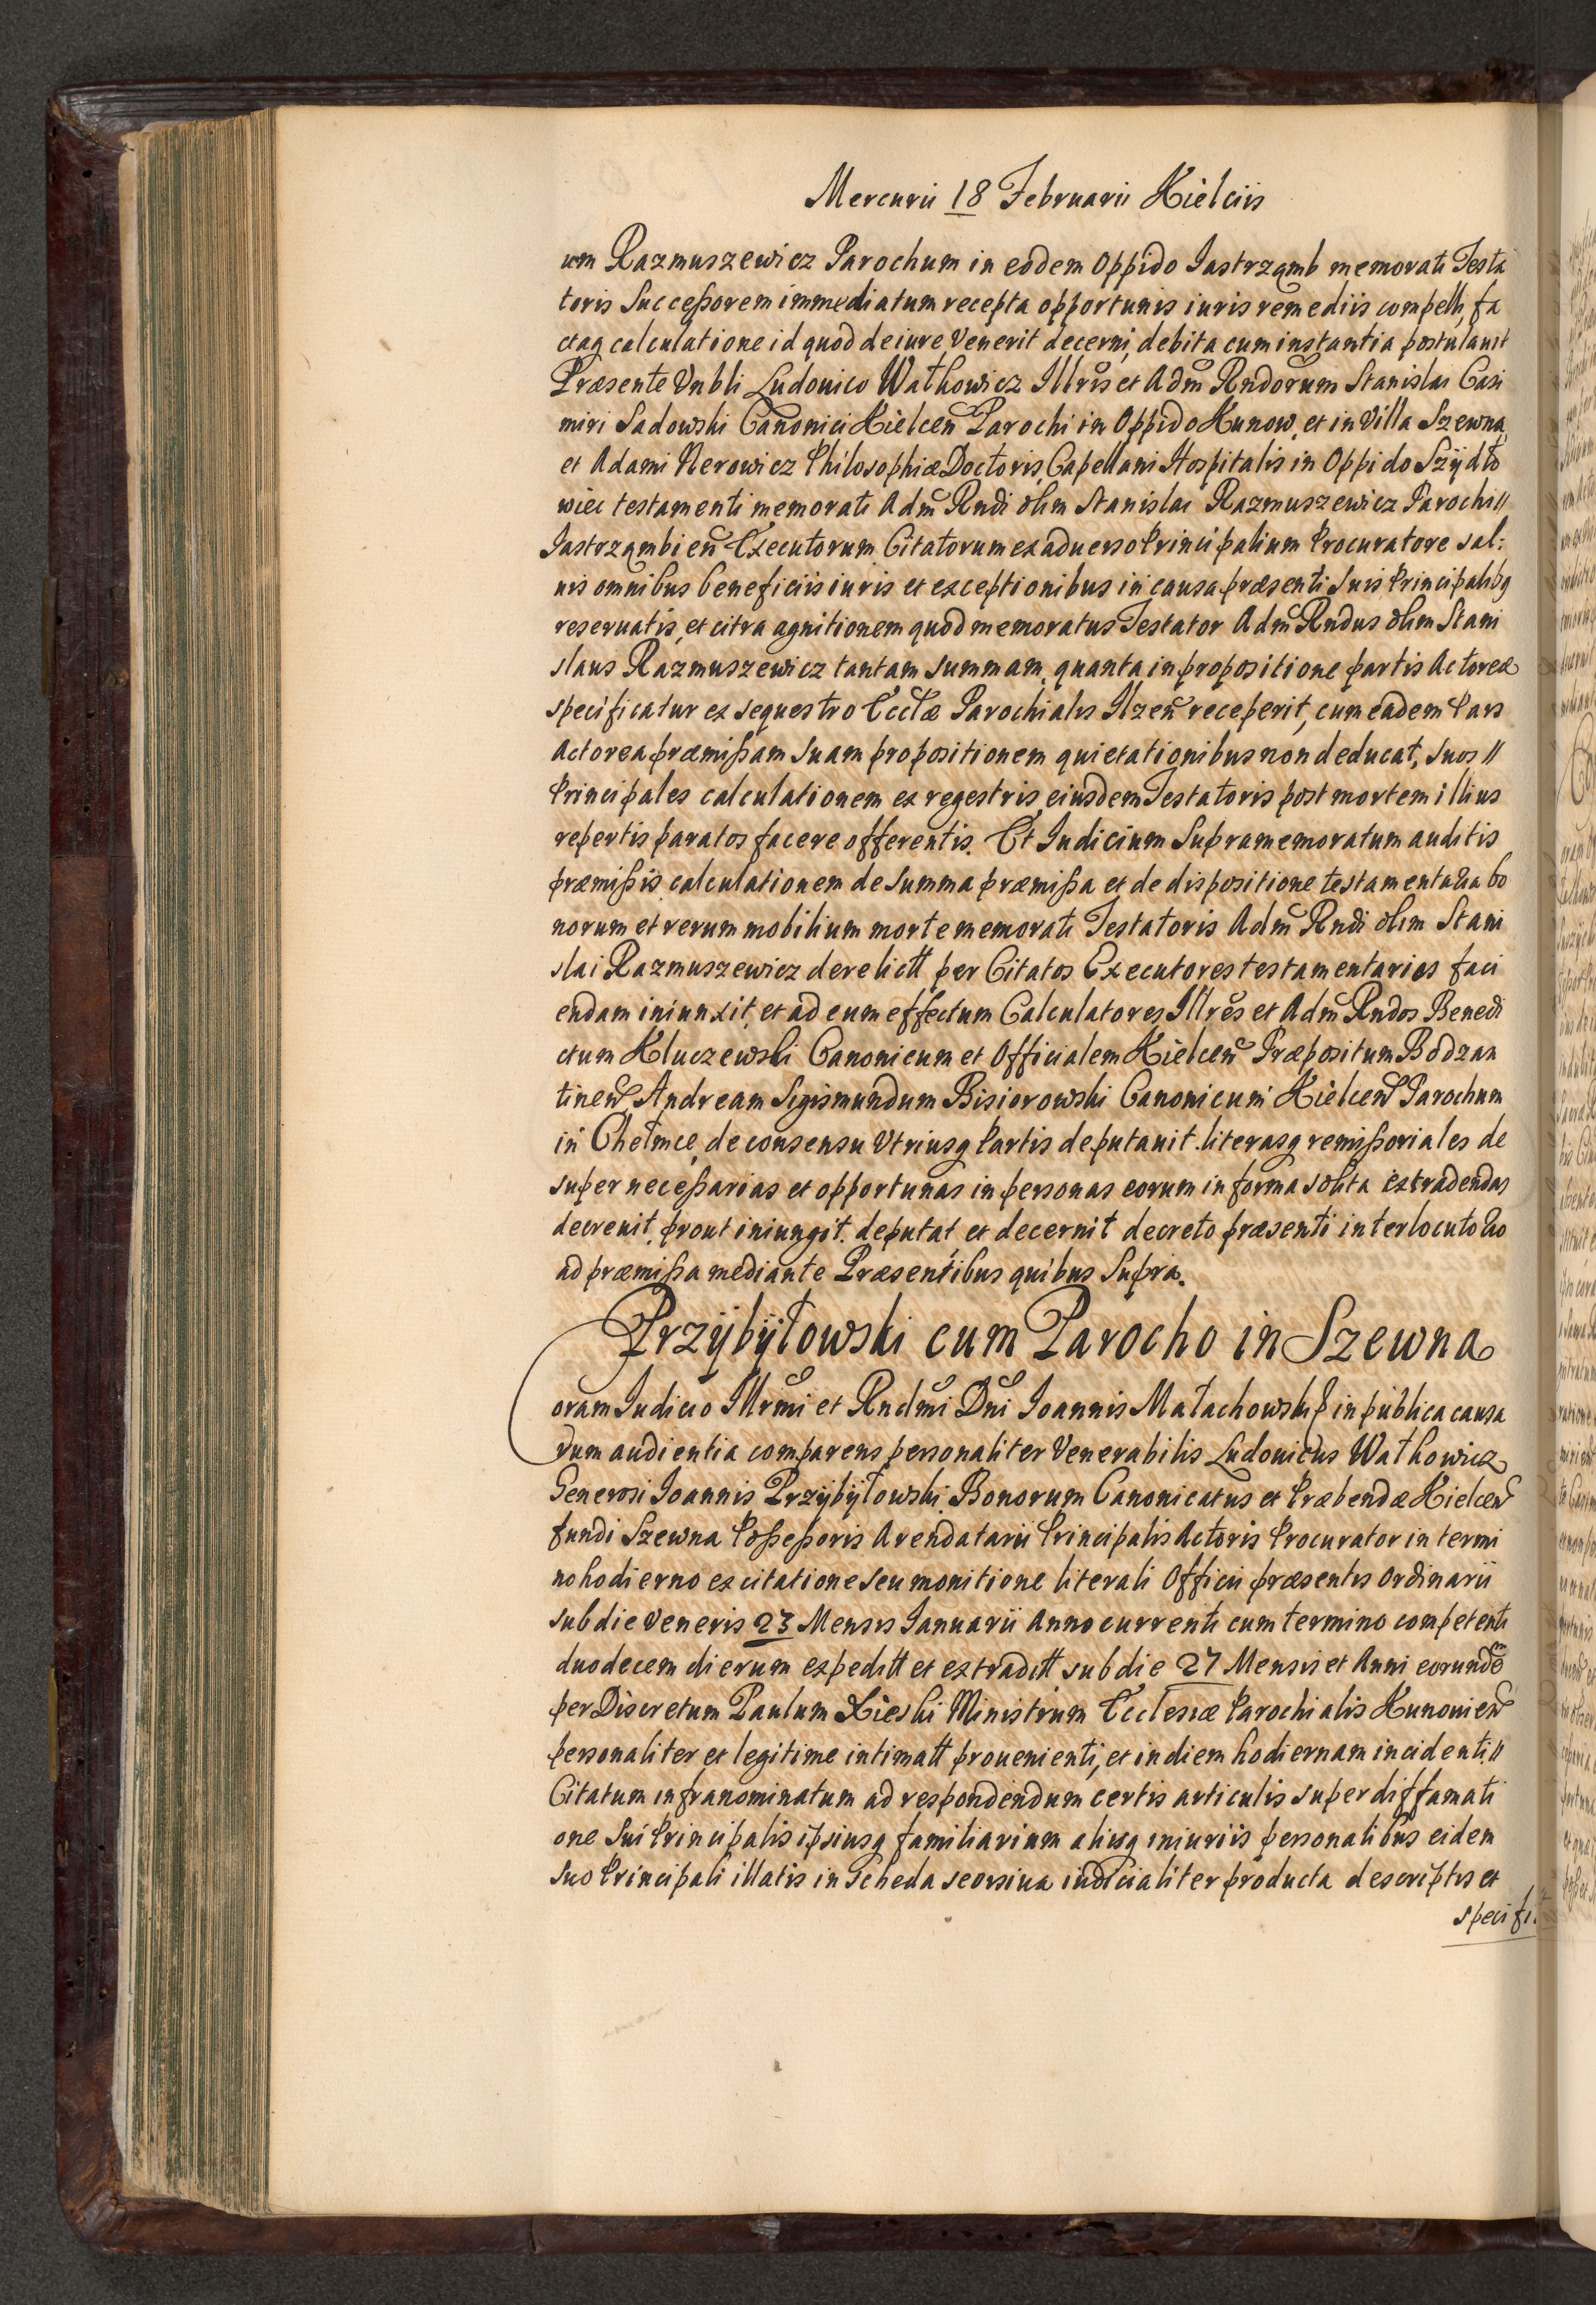 Mercurii 18 Februarii Kielciis
um Razmuszewicz Parochum in eodem Oppido Jastrząmb memorati Testa
toris Successorem immediatum recepta opportunis iuris remediis compelli, fa
ctaq calculatione id quod de iure Venerit decerni, debita cum instantia postulauit
Præsente Vnbli Ludouico Wathowicz Illris et Adm Rndorum Stanislai Casi
miri Sadowski Canonici Kielcen Parochi in Oppido Kunow, et in Villa Szewna,
et Adami Nerowicz Philosophiæ Doctoris, Capellani Hospitalis in Oppido Szÿdło
wiec testamenti memorati Adm Rndi olim Stanislai Razmuszewicz Parochi //
Jastrząmbien Executorum Citatorum ex aduerso Principalium Procuratore sal:
uis omnibus beneficiis iuris et exceptionibus in causa præsenti Suis Principalibq
reseruatis, et citra agnitionem quod memoratus Testator Adm Rndus olim Stani
slaus Razmuszewicz tantam summam, quanta in propositione partis Actoreæ
specificatur ex sequestro Eccłæ Parochialis Ilzen receperit, cum eadem Pars
Actorea præmissam Suam propositionem quietationibus non deducat, Suos //
Principales calculationem ex regestris eiusdem Testatoris post mortem illius
repertis paratos facere offerentis. Et Iudicium Supramemoratum auditis
præmissis calculationem de Summa præmissa et de dispositione testamentaria bo
norum et rerum mobilium morte memorati Testatoris Adm Rndi olim Stani
slai Razmuszewicz derelictt per Citatos Executores testamentarios faci
endam iniunxit, et ad eum effectum Calculatores Illres et Adm Rndos Benedi
ctum Kluczewski Canonicum et Officialem Kielcen Præpositum Bodzan
tinen, Andream Sigismundum Bisiorowski Canonicum Kielcen Parochum
in Chełmce, de consensu Vtriusq Partis deputauit. literasq remissoriales de
super necessarias et opportunas in personas eorum in forma solita extradendas
decreuit, prout iniungit. deputat et decernit decreto præsenti interlocutorio
ad præmissa mediante Præsentibus quibus Supra.
Przÿbÿłowski cum Parocho in Szewna
Coram Iudicio Illrmi et Rndmi Dni Ioannis Małachowski in publica causa
rum audientia comparens personaliter Venerabilis Ludouicus Wathowicz
Generosi Ioannis Przÿbÿłowski Bonorum Canonicatus et Præbendæ Kielcen
fundi Szewna Possessoris Arendatarii Principalis Actoris Procurator in termi
no hodierno ex citatione seu monitione literali Officii præsentis Ordinarii
sub die Veneris 23 Mensis Ianuarii Anno currenti cum termino competenti
duodecem dierum expeditt et extraditt sub die 27 Mensis et Anni eorunde
per Discretum Paulum Ministrum Ecclesiæ Parochialis Kunouien
personaliter et legitime intimatt prouenienti, et in diem hodiernam incidenti //
Citatum infranominatum ad respondendum certis articulis super diffamati
one Sui Principalis ipsiusq familiarium aliisq iniuriis personalibus eidem
Suo Principali illatis in Scheda seorsiua iudicialiter producta descriptis et
specifi.